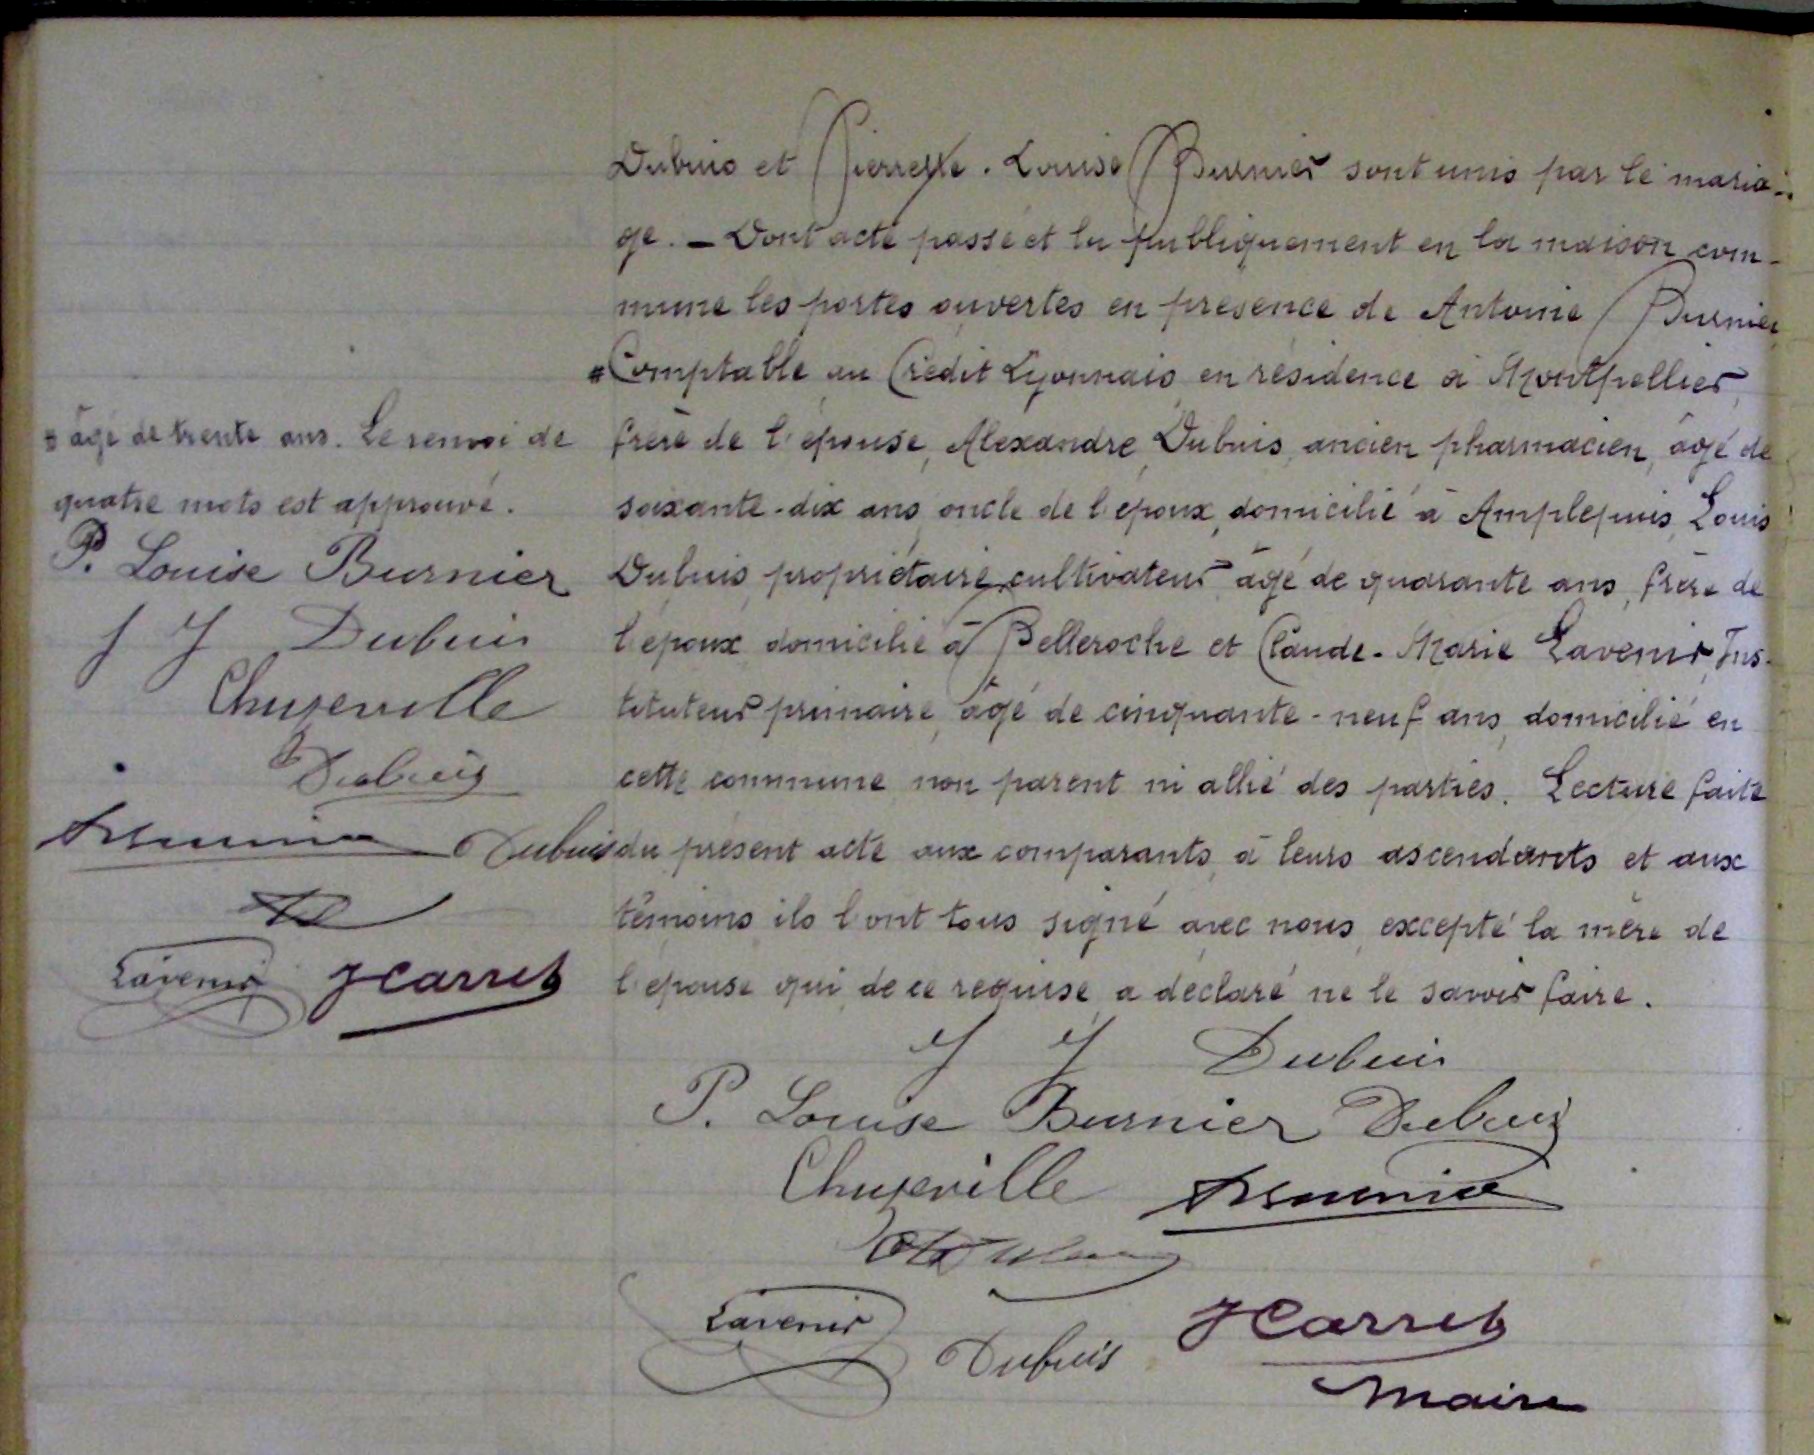 Dubuis et Pierrette-Louise Burnier sont unis par le maria-
ge. — Dont acte passé et lu publiquement en la maison com-
mune les portes ouvertes en présence de Antoine Burnier,
# Comptable au Crédit Lyonnais, en résidence à Montpellier,
frère de l'épouse, Alexandre Dubuis, ancien pharmacien, âgé de
soixante-dix ans, oncle de l'époux, domicilié à Amplepuis, Louis
Dubuis, propriétaire cultivateur âgé de quarante ans, frère de
l'époux domicilié à Belleroche et Claude-Marie Lavenir, Ins-
tituteur primaire, âgé de cinquante-neuf ans, domicilié en
cette commune non parent ni allié des parties. Lecture faite
du présent acte aux comparants, à leurs ascendants et aux
témoins ils l'ont tous signé avec nous, excepté la mère de
l'épouse qui, de ce requise, a déclaré ne le savoir faire.
J J Dubuis
P. Louise Burnier Dubuis
Chuzeville
Lavenir Dubuis JCarret
Maire
# âgé de trente ans. Le renvoi de
quatre mots est approuvé.
P. Louise Burnier
J J Dubuis
Chuzeville
Dubuis
Dubuis
Lavenir JCarret